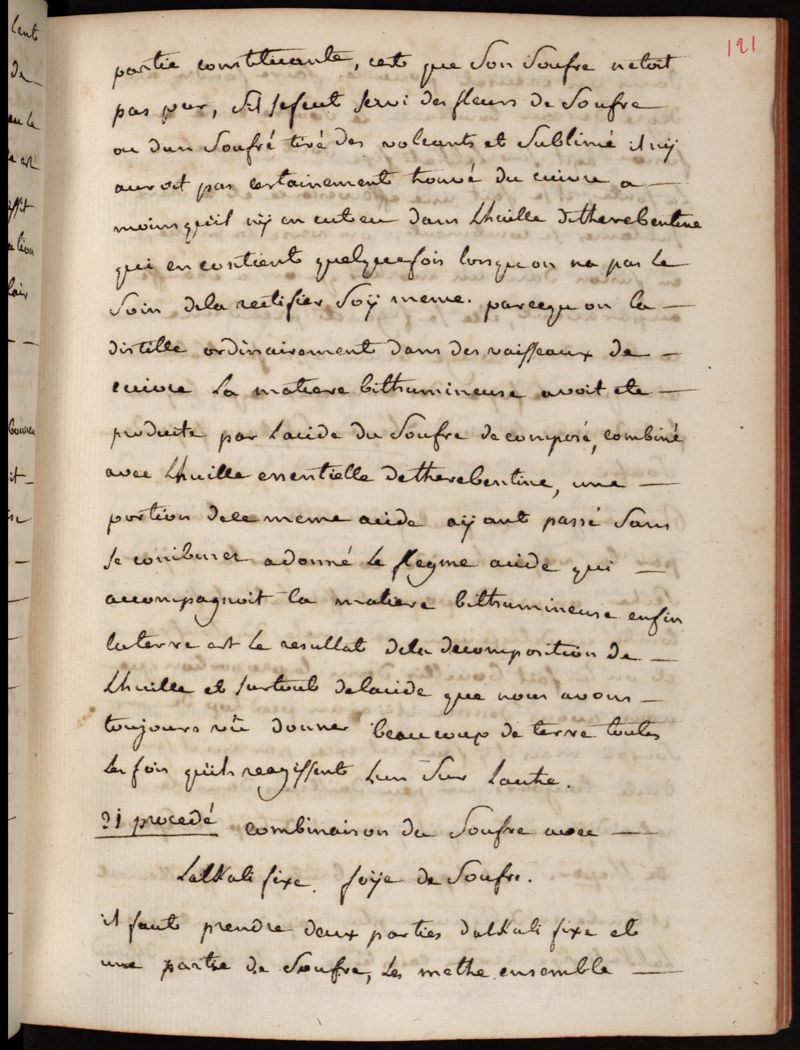 121
partie constituante, cest que Son Soufre netoit
pas pur, Sil sefeut servi des fleurs de Soufre
ou dun Soufré tiré des volcants et Sublimé il nÿ
auroit pas certainement trouvé du cuivre a —
moins quil nÿ en eut eu dans Lhuille detherebentine
qui en contient quelquefois lorsquon na pas le
Soin dela rectifier Soÿ meme. parcequ on la —
distille ordinairement dans des vaisseaux de —
cuivre La matiere bithumineuse avoit ete —
produite par Lacide du Soufre decomposé, combiné
avec Lhuille essentielle detherebentine, une —
portion dece meme acide aÿant passé Sans
Se combiner adonné Le flegme acide qui —
accompagnoit la matiere bithumineuse enfin
laterre est le resultat dela decomposition de —
Lhuille et surtout delacide que nous avons —
toujours vû donner beaucoup de terre toutes
Les fois quils reagissent Lun Sur Lautre.
21 procedé combinaison du Soufre avec —
LalKali fixe. foÿe de Soufre.
il faut prendre deux parties dalKali fixe et
une partie de Soufre, Les methe ensemble —